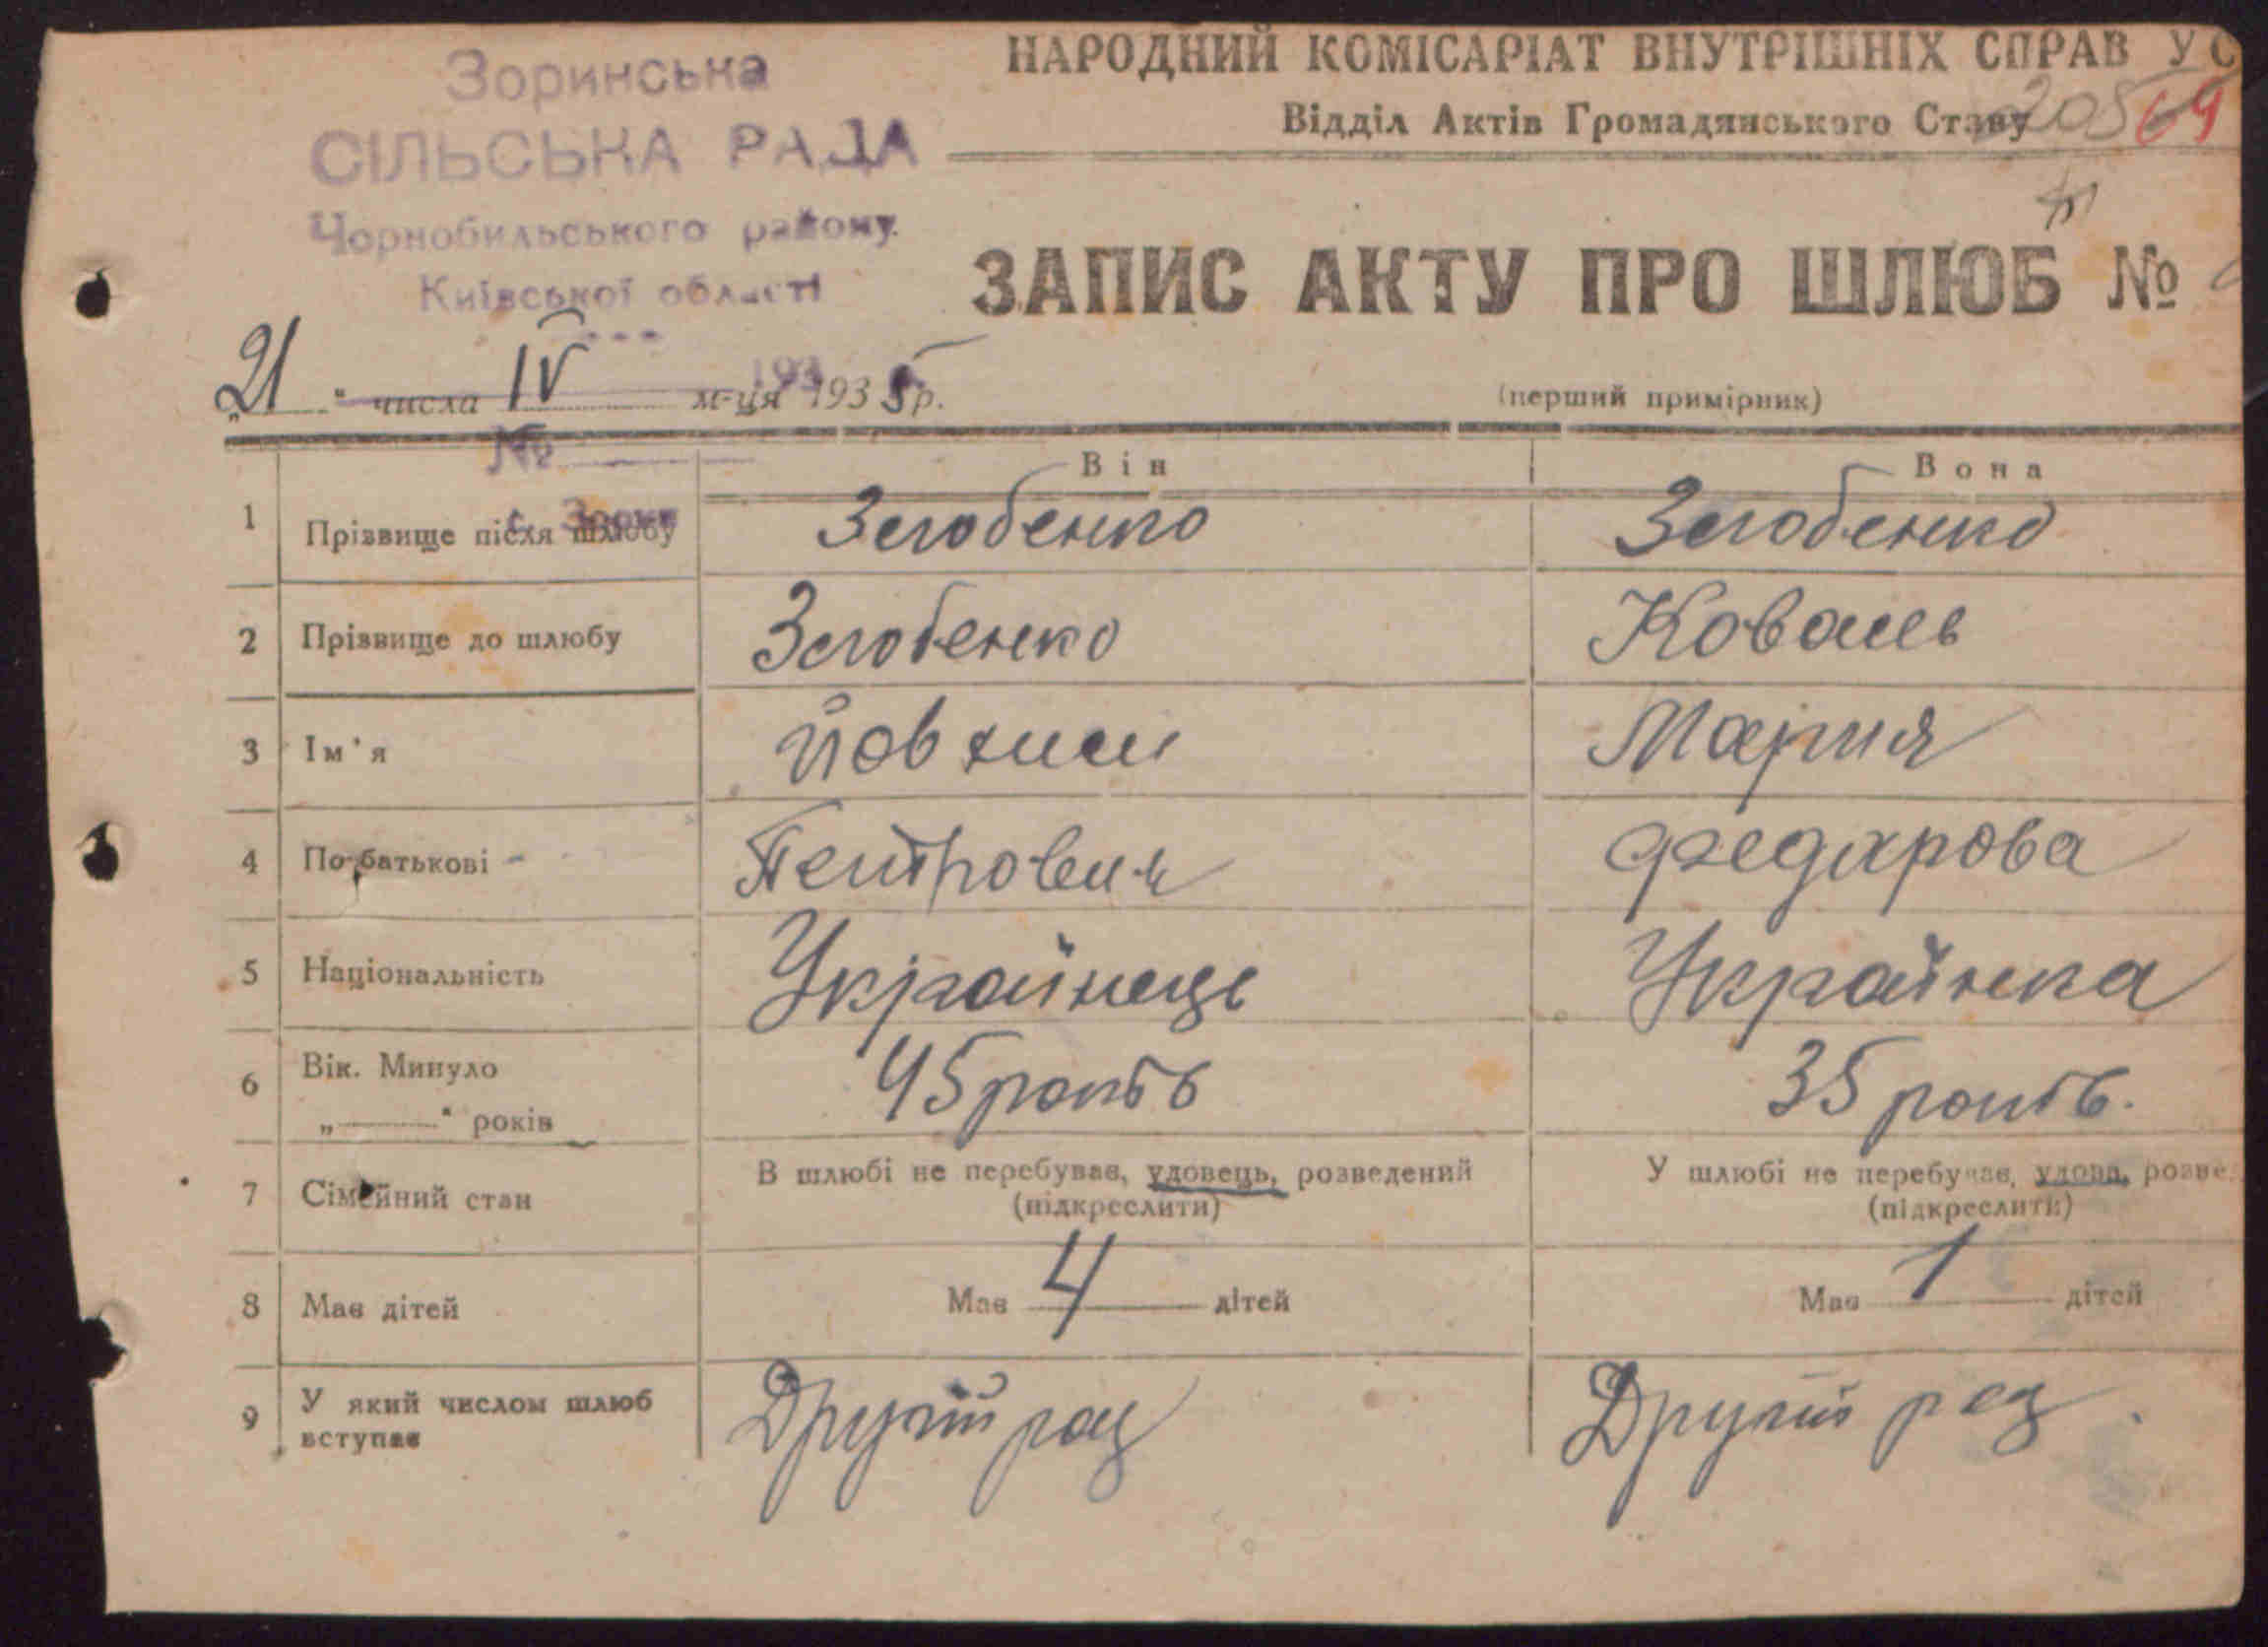 Зоринська
СІЛЬСЬКА РАДА
Чорнобильського району
Київської області
НАРОДНИЙ КОМІСАРІАТ ВНУТРІШНІХ СПРАВ УС
Відділ Актів Громадянського Стану
205 69
ЗАПИС АКТУ ПРО ШЛЮБ №
„21" числа IV м-ця 1935 р.
(перший примірник)
№
Він Вона
1 Прізвище після шлюбу Зегобенко Зегобенко
2 Прізвище до шлюбу Зегобенко Коваль
3 Ім'я Йовхим Мария
4 По-батькові Петрович Федарова
5 Національність Украйнець Украйнка
6 Вік. Минуло
„——" років 45 років 35 років.
7 Сімейний стан В шлюбі не перебував, удовець, розведений У шлюбі не перебував, удова, розве
(підкреслити) (підкреслити)
8 Має дітей Має 4 дітей Має 1 дітей
9 У який числом шлюб
вступає Другий раз Другий раз